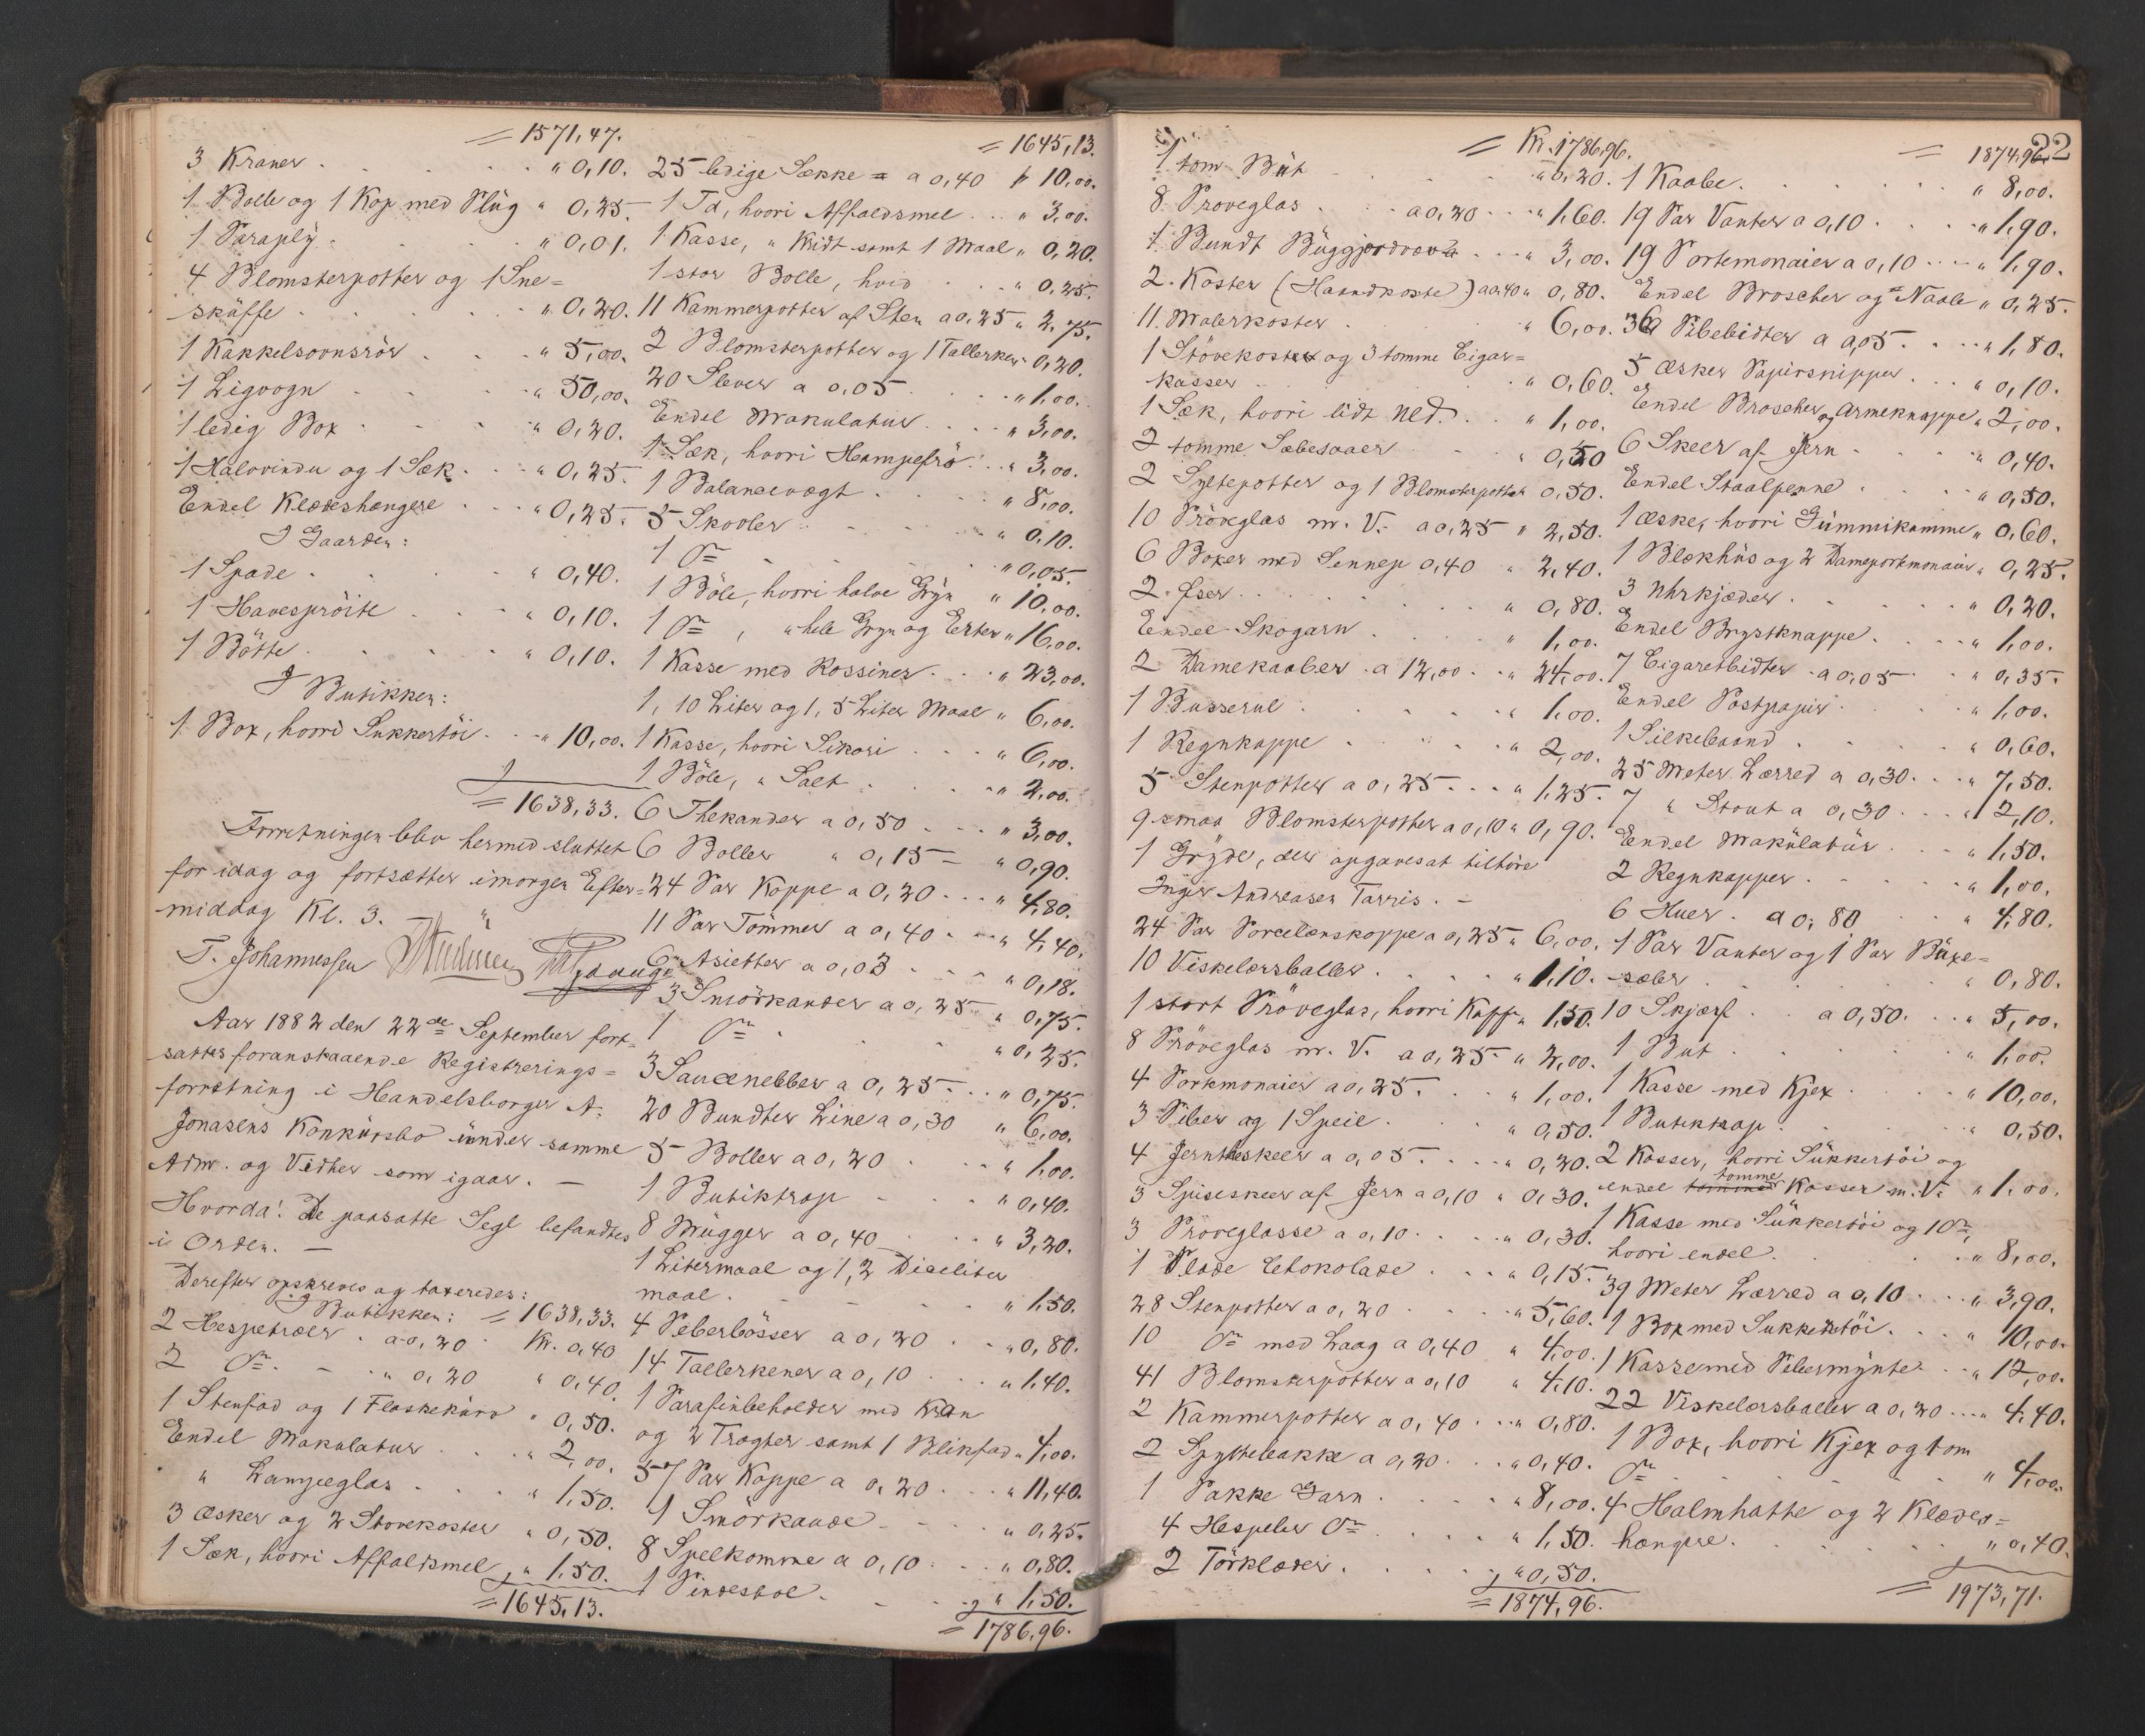 = 1571,47.
3 Kraner . . . " 0,10.
1 Bolle og 1 Kop med Plüg " 0,25.
1 Paraply . . . " 0,01.
4 Blomsterpotter og 1 Sne=
skuffe . . . " 0,20.
1 Kakkelsovnsrör . . " 5,00.
1 Ligvogn . . . " 50,00.
1 ledig Box . . . " 0,20.
1 Halvvindu og 1 Sæk . . " 0,25.
Endel Klædeshængere . . " 0,25.
I Gaarden:
1 Spade . . . " 0,40.
1 Havespröite . . " 0,10.
1 Bötte . . . " 0,10.
I Butikken:
1 Box, hvori Sukkertöi . . " 10,00.
= 1638,33.
Forretningen blev hermed sluttet
for idag og fortsættes imorgen Efter=
middag Kl. 3. —
T. Johannessen
Aar 1882 den 22de September fort=
sattes foranstaaende Registrerings=
forretning i Handelsborger A.
Jonasens Konkürsbo ünder samme
Adm. og Vidner som igaar. —
Hvorda! De paasatte Segl befandtes
i Orden. —
Derefter opskreves og taxeredes:
I Butikken: = 1638,33.
2 Hespetræer . a 0,20 Kr. 0,40
2 Do. — " 0,20 " 0,40.
1 Stenfad og 1 Flaskekürv " 0,50.
Endel Makulatur . . " 2,00.
" Lampeglas . . . " 1,50.
3 Æsker og 2 Stovekoster " 0,50.
1 Sæk, hvori Affaldsmel " 1,50.
= 1645,13.
= 1645,13.
25 ledige Sække = a 0,40 " 10,00.
1 Td, hvori Affaldsmel . . " 3,00.
1 Kasse, " Kridt samt 1 Maal " 0,20.
1 stor Bolle, hvid . . " 0,25.
11 Kammerpotter af Sten a 0,25 " 2,75.
2 Blomsterpotter og 1 Tallerken " 0,20.
20 Slever a 0,05 . . " 1,00.
Endel Makulatur . . . " 3,00.
1 Sæk, hvori Hampefrö . . " 3,00.
1 Balancevægt . . . " 8,00.
5 Skovler . . . " 0,10.
1 Do . . . " 0,05.
1 Böle, hvori halve Gryn " 10,00.
1 Do , " hele Gryn og Erter " 16,00.
1 Kasse med Rossiner . . " 23,00.
1, 10 Liter og 1, 5 Liter Maal " 6,00.
1 Kasse, hvori Sikori . . " 6,00.
1 Böle, " Salt . . . " 2,00.
6 Thekander a 0,50 . . " 3,00.
6 Boller " 0,15 — " 0,90.
24 Par Koppe a 0,20 . . " 4,80.
11 Par Tömmer a 0,40 . . " 4,40.
6 Asietter a 0,03 . . " 0,18.
3 Smörkander a 0,25 " 0,75.
1 Do . . . " 0,25.
3 Saucenebber a 0,25 . . " 0,75.
20 Bundter Line a 0,30 " 6,00.
5 Boller a 0,20 . . " 1,00.
1 Butiktrap . . . " 0,40.
8 Mügger a 0,40 . . " 3,20.
1 Litermaal og 1, 2 Deciliter
maal . . . " 1,50.
4 Peberbösser a 0,20 . . " 0,80.
14 Tallerkener a 0,10 . . " 1,40.
1 Parafinbeholder med Kran
og 2 Tragter samt 1 Blikfad " 4,00.
57 Par Koppe a 0,20 . . " 11,40.
1 Smörkande . . . " 0,25.
8 Spelkomme a 0,10 . . " 0,80.
1 Pindestol . . . " 1,50.
= 1786,96.
22
= Kr. 1786,96.
1 tom Büt . . . " 0,20.
8 Pröveglas . . a 0,20 . . " 1,60.
1 Bundt . . . " 3,00.
2 Koster (Haandkoste) a 0,40 " 0,80.
11 Malerkoster . . . " 6,00.
1 Stövekost og 3 tomme Cigar=
kasser . . . " 0,60.
1 Sæk, hvori lidt Uld . . " 1,00.
2 tomme Sæbesaaer . . " 0,50
2 Syltepotter og 1 Blomsterpotte " 0,50.
10 Pröveglas m. V. a 0,25 " 2,50.
6 Boxer med Sennep 0,40 " 2,40.
2 Öser . . . " 0,80.
Endel Skogarn . . . " 1,00.
2 Damekaaber . a 12,00 . . " 24,00.
1 Busserul . . . " 1,00.
1 Regnkappe . . . " 2,00.
5 Stenpotter a 0,25 . . " 1,25.
9 smaa Blomsterpotter a 0,10 " 0,90.
1 Gryde, der opgaves at tilhöre
Inger Andreasen Tarris. —
24 Par Porcelænskoppe a 0,25 " 6,00.
10 Viskelærsballer . . " 1,10.
1 stort Pröveglas, hvori Kaff " 1,50.
8 Pröveglas m. V. a 0,25 " 2,00.
4 Portmonaier a 0,25 . . " 1,00.
3 Piber og 1 Speil . . " 0,50.
4 Jerntheskeer a 0,05 . . " 0,20.
3 Spiseskeer af Jern a 0,10 " 0,30.
3 Pröveglasse a 0,10 . . " 0,30.
1 Plade Chokolade . . . " 0,15.
28 Stenpotter a 0,20 . . " 5,60.
10 Do med Laag a 0,40 " 4,00.
41 Blomsterpotter a 0,10 " 4,10.
2 Kammerpotter a 0,40 . . " 0,80.
2 Spyttebakke a 0,20 . . " 0,40.
1 Pakke Garn . . . " 8,00.
4 Hespeler Do . . . " 1,50.
2 Törklæder . . . " 0,50.
= 1874,96.
= 1874,96
1 Kaabe . . . " 8,00.
19 Par Vanter a 0,10 . . " 1,90.
19 Portemonaier a 0,10 . . " 1,90.
Endel Broscher og Naale " 0,25.
36 Pibebidter a 0,05 . . " 1,80.
5 Æsker Papirsnipper . . " 0,10.
Endel Broscher og Armeknappe " 2,00.
6 Skeer af Jern . . . " 0,40.
Endel Staalpenne . . " 0,50.
1 Æske, hvori Gümmikamme " 0,60.
1 Blækhüs og 2 Dameportmonaier " 0,25.
3 Uhrkjæder . . . " 0,20.
Endel Brystknappe . . " 1,00.
7 Cigaretbidter a 0,05 . . " 0,35.
Endel Postpapir . . . " 1,00.
1 Silkebaand . . . " 0,60.
25 Meter Lærred a 0,30 . . " 7,50.
7 " Stout a 0,30 . . " 2,10.
Endel Makülatür . . " 1,50.
2 Regnkapper . . . " 1,00.
6 Huer . a 0,80 . . " 4,80.
1 Par Vanter og 1 Par Büxe=
sæler . . . " 0,80.
10 Skjærf . . a 0,50 . . " 5,00.
1 But . . . " 1,00.
1 Kasse med Kjex . . " 10,00.
1 Butiktrap . . . " 0,50.
2 Kasser, hvori Sükkertöi og
endel tomme Kasser m. V. " 1,00.
1 Kasse med Sükkertöi og 1 Do,
hvori endel . . . " 8,00.
39 Meter Lærred a 0,10 . . " 3,90.
1 Box med Sukkertöi . . " 10,00.
1 Kasse med Pebermynte . . " 12,00.
22 Viskelærsballer a 0,20 . . " 4,40.
1 Box, hvori Kjex og tom
Do . . . " 4,00.
4 Halmhatte og 2 Klædes=
hængere . . . " 0,40.
= 1973,71.